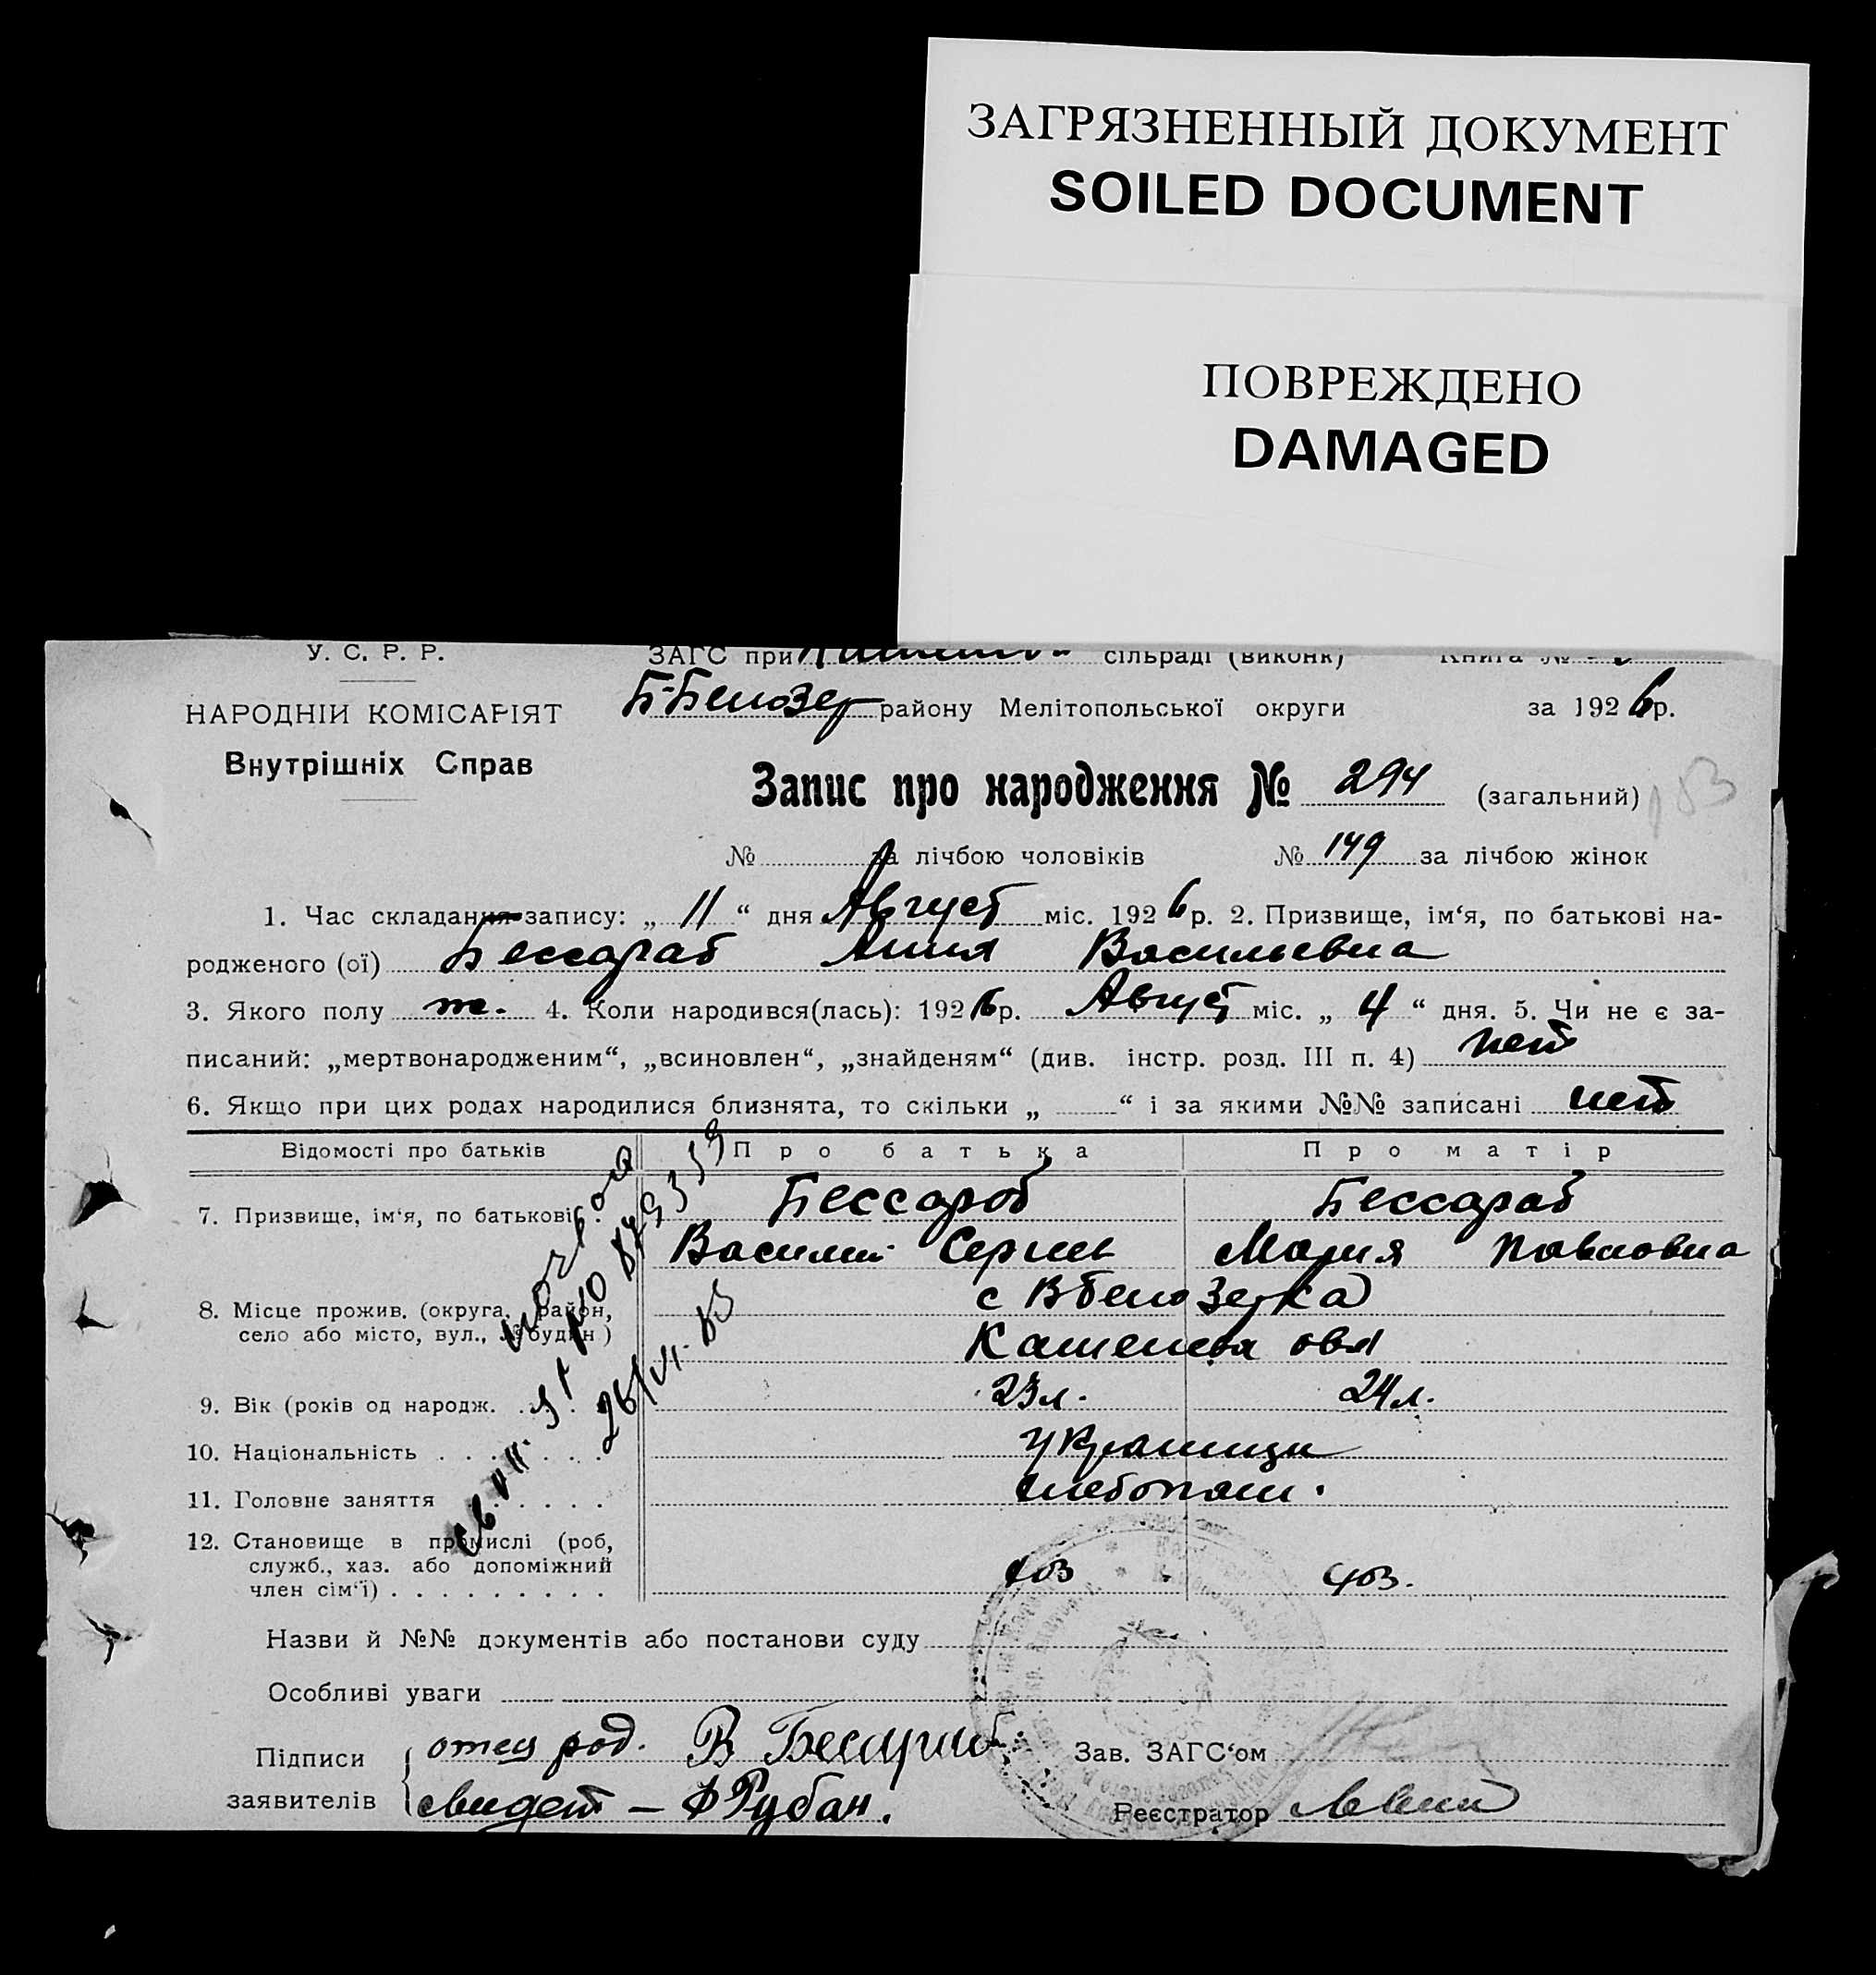 ЗАГРЯЗНЕННЫЙ ДОКУМЕНТ
SOILED DOCUMENT
ПОВРЕЖДЕНО
DAMAGED
У. С. Р. Р. ЗАГС при сільраді (виконк) Книга №
НАРОДНІЙ КОМІСАРІЯТ Б-Белозер району Мелітопольської округи за 1926 р.
Внутрішніх Справ
Запис про народження № 294 (загальний)
№ за лічбою чоловіків № 149 за лічбою жінок
1. Час складання запису: „ 11 “ дня Август міс. 1926 р. 2. Призвище, ім‘я, по батькові на-
родженого (ої) Бессараб Анна Васильевна
3. Якого полу ж. 4. Коли народився(лась): 1926 р. Август міс. „ 4 “ дня. 5. Чи не є за-
писаний: „мертвонародженим“, „всиновлен“, „знайденям“ (див. інстр. розд. III п. 4) нет
6. Якщо при цих родах народилися близнята, то скільки „ “ і за якими №№ записані нет
Відомості про батьків Про батька Про матір
7. Призвище, ім‘я, по батькові Бессараб Бессараб
Василий Сергеев Мария Павловна
8. Місце прожив. (округа, район, с Вбелозерка
село або місто, вул., № будин)
9. Вік (років од народж. 23 л. 24 л.
10. Національність украинцы
11. Головне заняття хлебопаш.
12. Становище в промислі (роб,
служб., хаз. або допоміжний
член сім‘ї) хоз чоз.
Назви й №№ документів або постанови суду
Особливі уваги
Підписи отец род. В Бесараб Зав. ЗАГС‘ом
заявителів свидет — Ф Рубан. Реєстратор